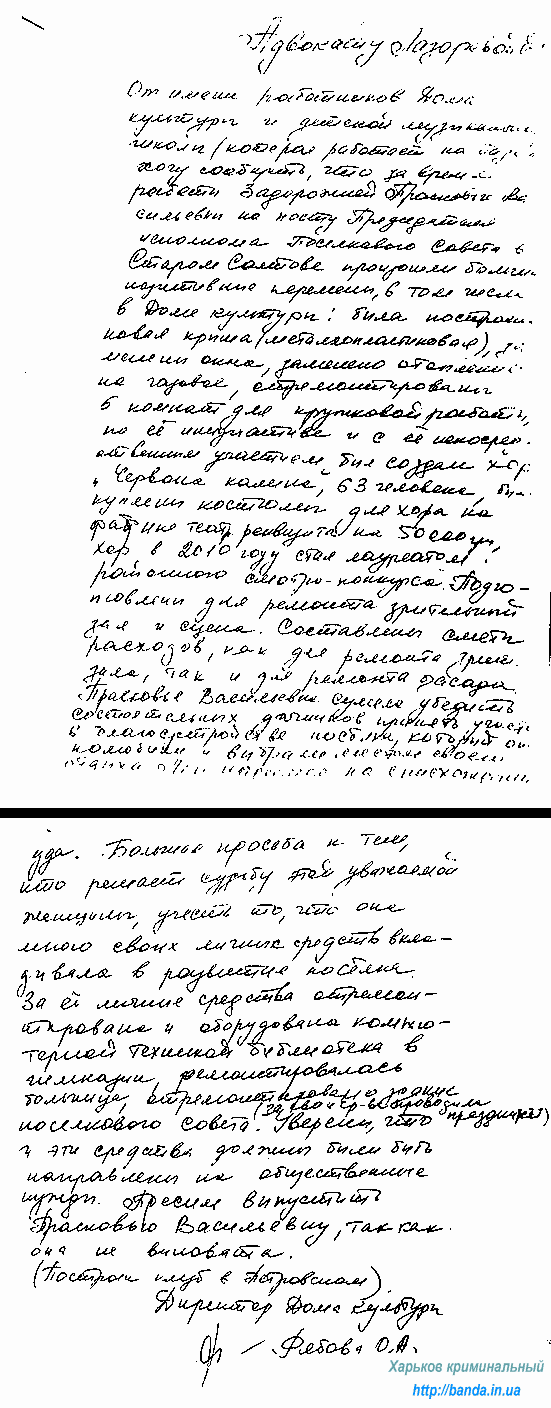 Адвокату Лазоревой Е.
От имени работников Дома
культуры и детской музыкальн
школы (которая работает на
хочу сообщить, что за время
работы Задорожней Прасковьи Ва
сильевны на посту Председателя
исполкома Поселкового Совета в
Старом Салтове произошли большие
позитивные перемены, в том числе
в Доме культуры: была построе
новая крыша (металлопластиковая), за
менены окна, заменено отопление
на газовое, отремонтированы
5 комнат для кружковой работы,
по её инициативе и с её непосред
ственным участием был создан хор
"Червона калина", 63 человека, бы
куплены костюмы для хора на
реквизита на 50000
хор в 2010 году стал лауреатом
районного смотра-конкурса. Подго-
товлены для ремонта зрительный
зал и сцена. Составлены сметы
расходов, как для ремонта зрит.
зала, так и для ремонта фасада.
Прасковье Васильевне сумела убедить
состоятельных дачников принять участ
в благоустройстве посёлка, который он
полюбили и выбрали местом своего
на снисхождение
уда. Большая просьба к тем,
кто решает судьбу этой уважаемой
женщины, учесть то, что она
много своих личных средств вкла-
дывала в развитие посёлка.
За её личные средства отремон-
тирована и оборудована компью-
терной техникой библиотека в
гимназии, ремонтировалась
больница, отремонтировано здание
(за свои ср-ва проводили праздники)
поселкового совета. Уверены, что
и эти средства должны были быть
направлены на общественные
нужды. Просим выпустить
Прасковью Васильевну, так как
она не виновата.
(Построен клуб в Петровском)
Директор Дома культуры
О.А.
Харьков криминальный
http://banda.in.ua